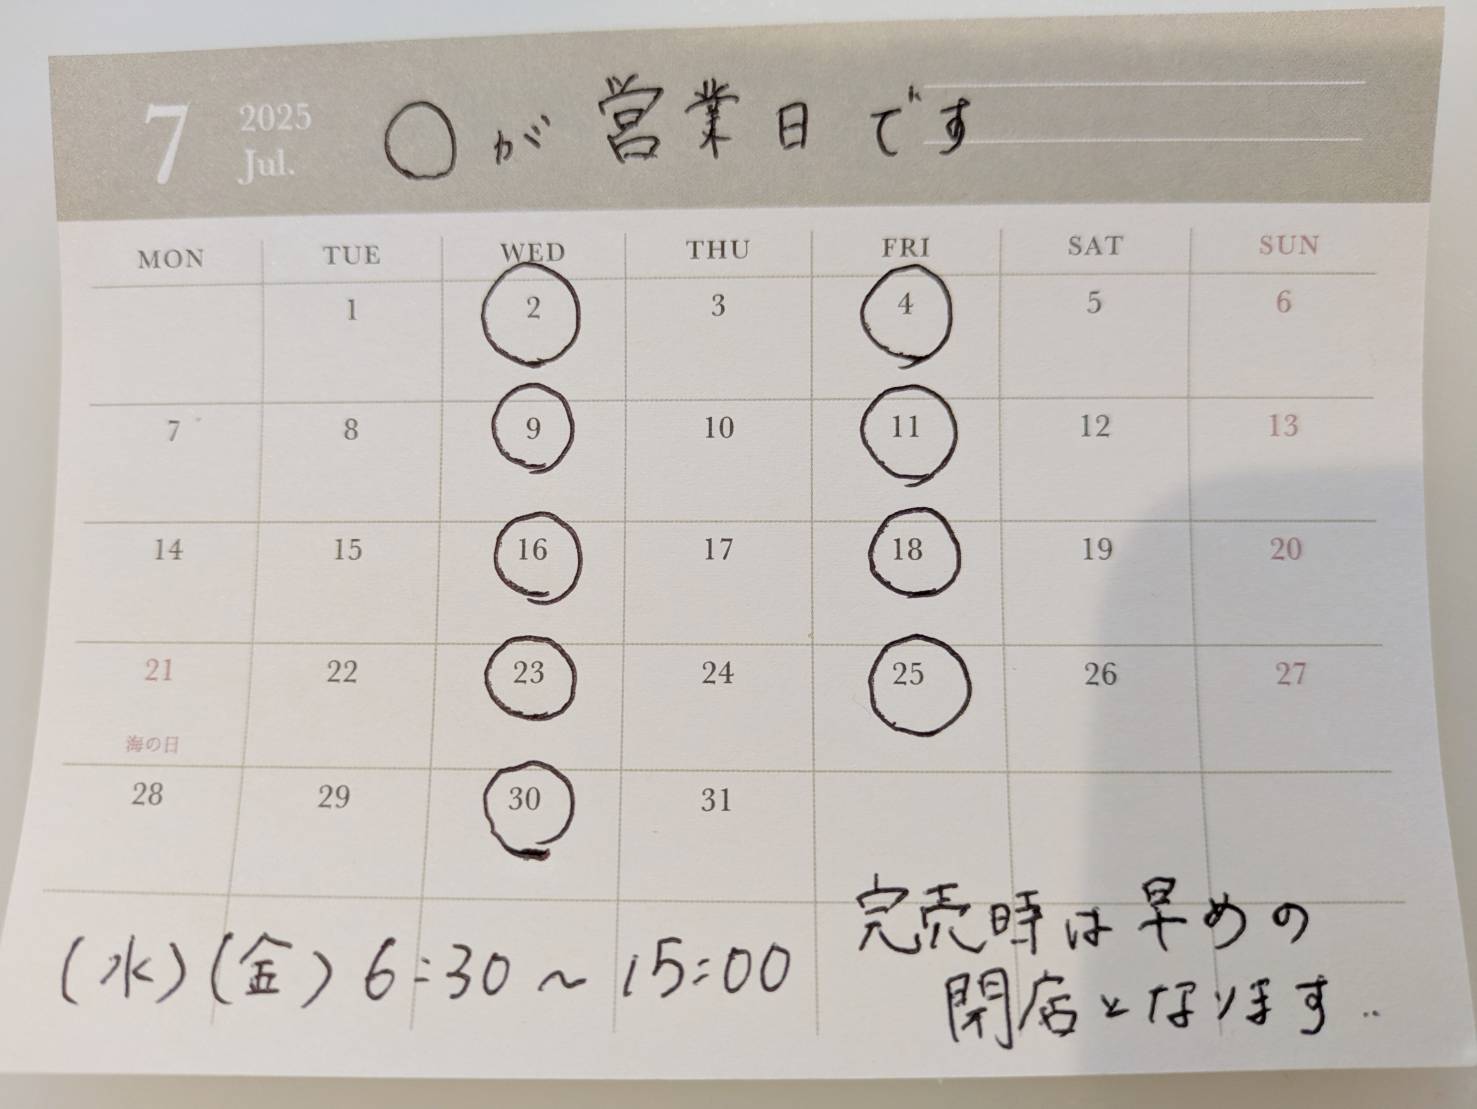 7 2025 ○が営業日です
Jul.
MON TUE WED THU FRI SAT SUN
1 2 3 4 5 6
7 8 9 10 11 12 13
14 15 16 17 18 19 20
21 22 23 24 25 26 27
海の日
28 29 30 31
(水)(金) 6:30~15:00
完売時は早めの
閉店となります..